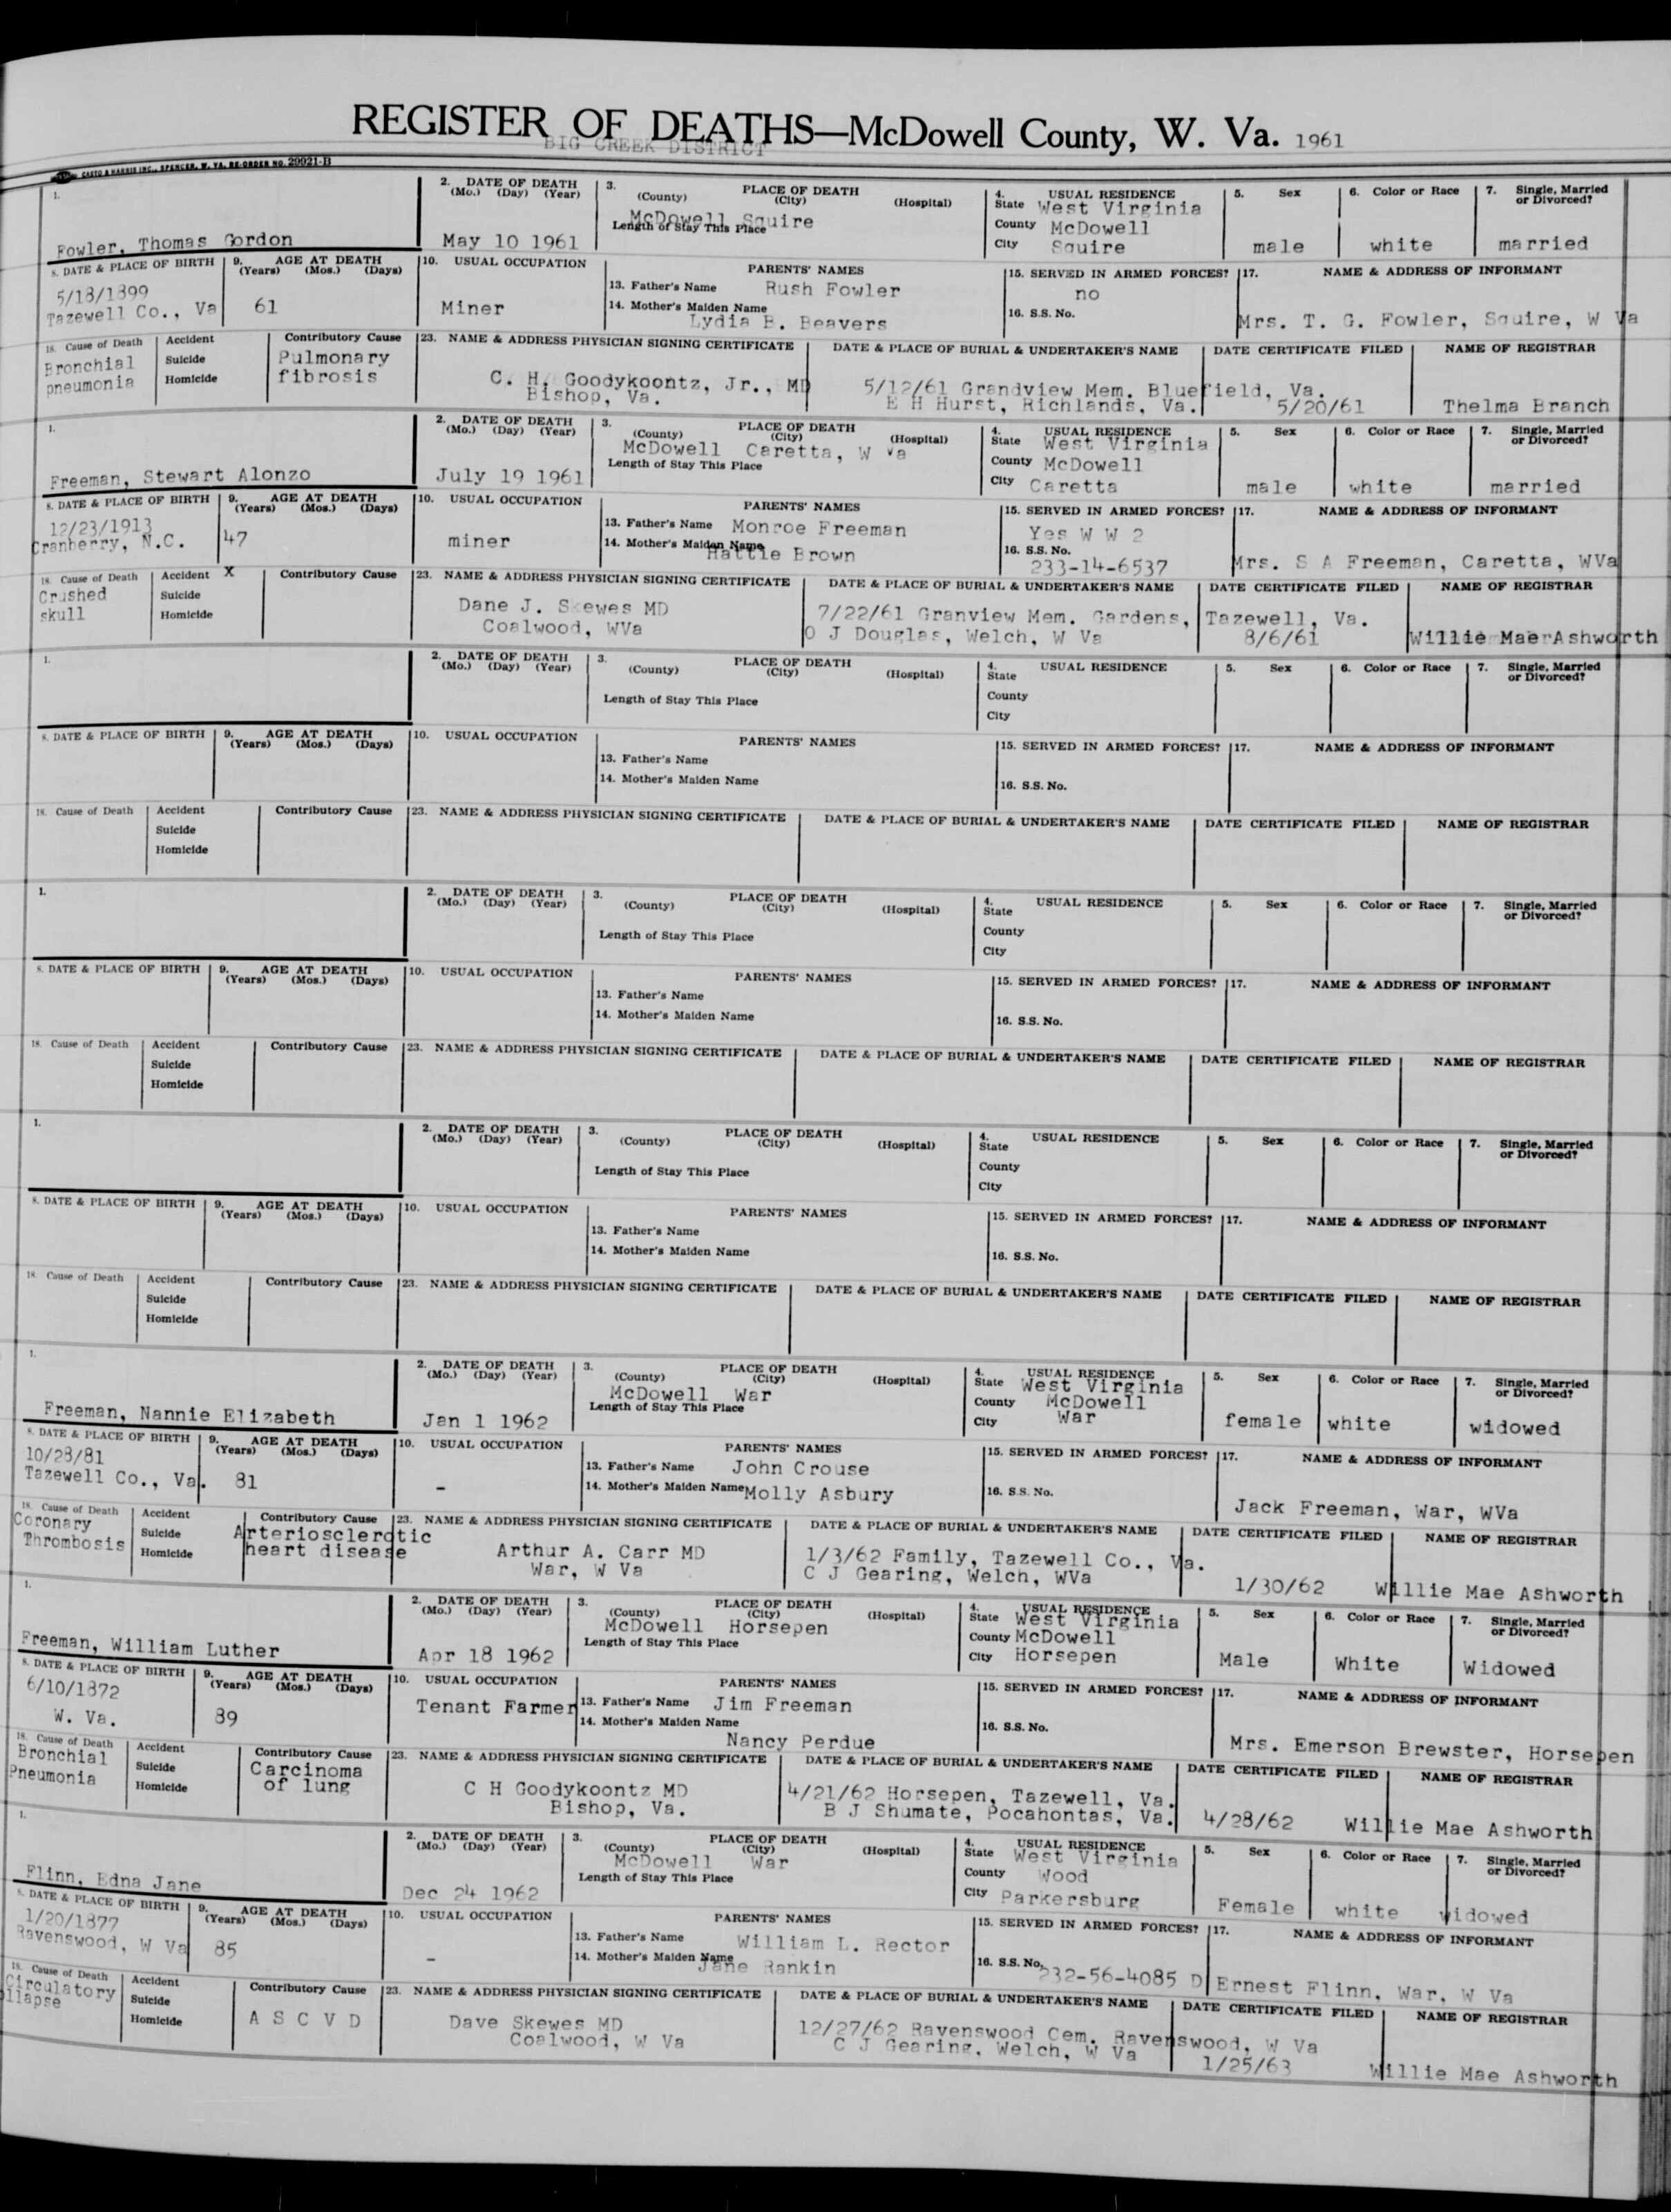 REGISTER OF DEATHS—McDowell County, W. Va. 1961
BIG CREEK DISTRICT
CASTO & HARRIS INC., SPENCER, W. VA. RE-ORDER NO. 29921-B
1. 2. DATE OF DEATH 3. PLACE OF DEATH 4. USUAL RESIDENCE 5. Sex 6. Color or Race 7. Single, Married or Divorced?
(Mo.) (Day) (Year) (County) (City) (Hospital) State West Virginia
McDowell Squire
Length of Stay This Place County McDowell
Fowler, Thomas Gordon May 10 1961 City Squire male white married
8. DATE & PLACE OF BIRTH 9. AGE AT DEATH 10. USUAL OCCUPATION PARENTS' NAMES 15. SERVED IN ARMED FORCES? 17. NAME & ADDRESS OF INFORMANT
(Years) (Mos.) (Days) 13. Father's Name Rush Fowler no
5/18/1899 14. Mother's Maiden Name 16. S.S. No.
Tazewell Co., Va 61 Miner Lydia B. Beavers Mrs. T. G. Fowler, Squire, W Va
18. Cause of Death Accident Contributory Cause 23. NAME & ADDRESS PHYSICIAN SIGNING CERTIFICATE DATE & PLACE OF BURIAL & UNDERTAKER'S NAME DATE CERTIFICATE FILED NAME OF REGISTRAR
Bronchial Suicide Pulmonary
pneumonia Homicide fibrosis C. H. Goodykoontz, Jr., MD 5/12/61 Grandview Mem. Bluefield, Va.
Bishop, Va. E H Hurst, Richlands, Va. 5/20/61 Thelma Branch
1. 2. DATE OF DEATH 3. PLACE OF DEATH 4. USUAL RESIDENCE 5. Sex 6. Color or Race 7. Single, Married or Divorced?
(Mo.) (Day) (Year) (County) (City) (Hospital) State West Virginia
McDowell Caretta, W Va
Length of Stay This Place County McDowell
Freeman, Stewart Alonzo July 19 1961 City Caretta male white married
8. DATE & PLACE OF BIRTH 9. AGE AT DEATH 10. USUAL OCCUPATION PARENTS' NAMES 15. SERVED IN ARMED FORCES? 17. NAME & ADDRESS OF INFORMANT
(Years) (Mos.) (Days) 13. Father's Name Monroe Freeman Yes W W 2
12/23/1913 14. Mother's Maiden Name 16. S.S. No.
Cranberry, N.C. 47 miner Hattie Brown 233-14-6537 Mrs. S A Freeman, Caretta, WVa
18. Cause of Death Accident X Contributory Cause 23. NAME & ADDRESS PHYSICIAN SIGNING CERTIFICATE DATE & PLACE OF BURIAL & UNDERTAKER'S NAME DATE CERTIFICATE FILED NAME OF REGISTRAR
Crushed Suicide Dane J. Skewes MD 7/22/61 Granview Mem. Gardens, Tazewell, Va.
skull Homicide Coalwood, WVa O J Douglas, Welch, W Va 8/6/61 Willie Mae Ashworth
1. 2. DATE OF DEATH 3. PLACE OF DEATH 4. USUAL RESIDENCE 5. Sex 6. Color or Race 7. Single, Married or Divorced?
(Mo.) (Day) (Year) (County) (City) (Hospital) State
Length of Stay This Place County
City
8. DATE & PLACE OF BIRTH 9. AGE AT DEATH 10. USUAL OCCUPATION PARENTS' NAMES 15. SERVED IN ARMED FORCES? 17. NAME & ADDRESS OF INFORMANT
(Years) (Mos.) (Days) 13. Father's Name
14. Mother's Maiden Name 16. S.S. No.
18. Cause of Death Accident Contributory Cause 23. NAME & ADDRESS PHYSICIAN SIGNING CERTIFICATE DATE & PLACE OF BURIAL & UNDERTAKER'S NAME DATE CERTIFICATE FILED NAME OF REGISTRAR
Suicide
Homicide
1. 2. DATE OF DEATH 3. PLACE OF DEATH 4. USUAL RESIDENCE 5. Sex 6. Color or Race 7. Single, Married or Divorced?
(Mo.) (Day) (Year) (County) (City) (Hospital) State
Length of Stay This Place County
City
8. DATE & PLACE OF BIRTH 9. AGE AT DEATH 10. USUAL OCCUPATION PARENTS' NAMES 15. SERVED IN ARMED FORCES? 17. NAME & ADDRESS OF INFORMANT
(Years) (Mos.) (Days) 13. Father's Name
14. Mother's Maiden Name 16. S.S. No.
18. Cause of Death Accident Contributory Cause 23. NAME & ADDRESS PHYSICIAN SIGNING CERTIFICATE DATE & PLACE OF BURIAL & UNDERTAKER'S NAME DATE CERTIFICATE FILED NAME OF REGISTRAR
Suicide
Homicide
1. 2. DATE OF DEATH 3. PLACE OF DEATH 4. USUAL RESIDENCE 5. Sex 6. Color or Race 7. Single, Married or Divorced?
(Mo.) (Day) (Year) (County) (City) (Hospital) State
Length of Stay This Place County
City
8. DATE & PLACE OF BIRTH 9. AGE AT DEATH 10. USUAL OCCUPATION PARENTS' NAMES 15. SERVED IN ARMED FORCES? 17. NAME & ADDRESS OF INFORMANT
(Years) (Mos.) (Days) 13. Father's Name
14. Mother's Maiden Name 16. S.S. No.
18. Cause of Death Accident Contributory Cause 23. NAME & ADDRESS PHYSICIAN SIGNING CERTIFICATE DATE & PLACE OF BURIAL & UNDERTAKER'S NAME DATE CERTIFICATE FILED NAME OF REGISTRAR
Suicide
Homicide
1. 2. DATE OF DEATH 3. PLACE OF DEATH 4. USUAL RESIDENCE 5. Sex 6. Color or Race 7. Single, Married or Divorced?
(Mo.) (Day) (Year) (County) (City) (Hospital) State West Virginia
McDowell War
Length of Stay This Place County McDowell
Freeman, Nannie Elizabeth Jan 1 1962 City War female white widowed
8. DATE & PLACE OF BIRTH 9. AGE AT DEATH 10. USUAL OCCUPATION PARENTS' NAMES 15. SERVED IN ARMED FORCES? 17. NAME & ADDRESS OF INFORMANT
(Years) (Mos.) (Days) 13. Father's Name John Crouse
10/28/81
Tazewell Co., Va. 81 - 14. Mother's Maiden Name Molly Asbury 16. S.S. No. Jack Freeman, War, WVa
18. Cause of Death Accident Contributory Cause 23. NAME & ADDRESS PHYSICIAN SIGNING CERTIFICATE DATE & PLACE OF BURIAL & UNDERTAKER'S NAME DATE CERTIFICATE FILED NAME OF REGISTRAR
Coronary Suicide Arteriosclerotic
Thrombosis Homicide heart disease Arthur A. Carr MD 1/3/62 Family, Tazewell Co., Va.
War, W Va C J Gearing, Welch, WVa 1/30/62 Willie Mae Ashworth
1. 2. DATE OF DEATH 3. PLACE OF DEATH 4. USUAL RESIDENCE 5. Sex 6. Color or Race 7. Single, Married or Divorced?
(Mo.) (Day) (Year) (County) (City) (Hospital) State West Virginia
McDowell Horsepen
Length of Stay This Place County McDowell
Freeman, William Luther Apr 18 1962 City Horsepen Male White Widowed
8. DATE & PLACE OF BIRTH 9. AGE AT DEATH 10. USUAL OCCUPATION PARENTS' NAMES 15. SERVED IN ARMED FORCES? 17. NAME & ADDRESS OF INFORMANT
(Years) (Mos.) (Days)
6/10/1872 Tenant Farmer 13. Father's Name Jim Freeman
W. Va. 89 14. Mother's Maiden Name 16. S.S. No.
Nancy Perdue Mrs. Emerson Brewster, Horsepen
18. Cause of Death Accident Contributory Cause 23. NAME & ADDRESS PHYSICIAN SIGNING CERTIFICATE DATE & PLACE OF BURIAL & UNDERTAKER'S NAME DATE CERTIFICATE FILED NAME OF REGISTRAR
Bronchial Suicide Carcinoma
Pneumonia Homicide of lung C H Goodykoontz MD 4/21/62 Horsepen, Tazewell, Va.
Bishop, Va. B J Shumate, Pocahontas, Va. 4/28/62 Willie Mae Ashworth
1. 2. DATE OF DEATH 3. PLACE OF DEATH 4. USUAL RESIDENCE 5. Sex 6. Color or Race 7. Single, Married or Divorced?
(Mo.) (Day) (Year) (County) (City) (Hospital) State West Virginia
McDowell War
Length of Stay This Place County Wood
Flinn, Edna Jane Dec 24 1962 City Parkersburg Female white widowed
8. DATE & PLACE OF BIRTH 9. AGE AT DEATH 10. USUAL OCCUPATION PARENTS' NAMES 15. SERVED IN ARMED FORCES? 17. NAME & ADDRESS OF INFORMANT
(Years) (Mos.) (Days) 13. Father's Name William L. Rector
1/20/1877 14. Mother's Maiden Name 16. S.S. No.
Ravenswood, W Va 85 - Jane Rankin 232-56-4085 D Ernest Flinn, War, W Va
18. Cause of Death Accident Contributory Cause 23. NAME & ADDRESS PHYSICIAN SIGNING CERTIFICATE DATE & PLACE OF BURIAL & UNDERTAKER'S NAME DATE CERTIFICATE FILED NAME OF REGISTRAR
Circulatory Suicide
ollapse Homicide A S C V D Dave Skewes MD 12/27/62 Ravenswood Cem. Ravenswood, W Va
Coalwood, W Va C J Gearing, Welch, W Va 1/25/63 Willie Mae Ashworth